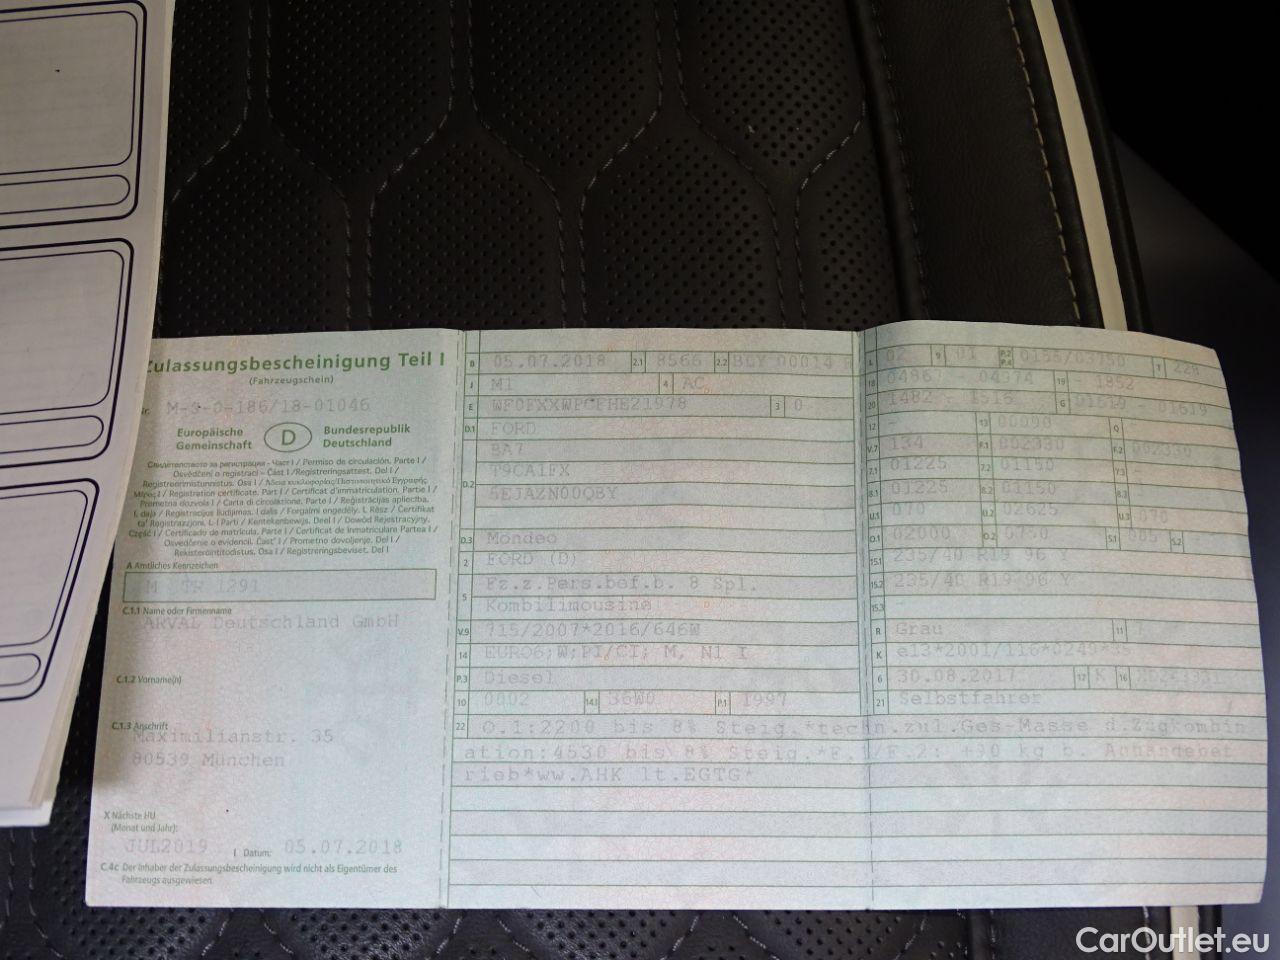 Zulassungsbescheinigung Teil I
(Fahrzeugschein)
Nr. M-3-0-186/18-01046
Europäische Gemeinschaft
D
Bundesrepublik Deutschland
Свидетелството за регистрация - Част I / Permiso de circulación. Parte I /
Osvědčení o registraci - Část I / Registreringsattest. Del I /
Μέρος I / Registration certificate. Part I / Certificat d'immatriculation. Partie I /
Prometna dozvola I / Carta di circolazione. Parte I / Reģistrācijas apliecība.
I. daļa / Registracijos liudijimas. I dalis / Forgalmi engedély. I. Rész / Ċertifikat
ta' Reġistrazzjoni. L-I Parti / Kentekenbewijs. Deel I / Dowód Rejestracyjny.
Część I / Certificado de matrícula. Parte I / Certificat de înmatriculare Partea I /
Osvedčenie o evidencii. Časť I / Prometno dovoljenje. Del I /
Rekisteröintitodistus. Osa I / Registreringsbeviset. Del I
A Amtliches Kennzeichen
M TR 1291
C.1.1 Name oder Firmenname
ARVAL Deutschland GmbH
C.1.2 Vorname(n)
C.1.3 Anschrift
Maximilianstr. 35
80539 München
X Nächste HU
(Monat und Jahr):
JUL2019 I Datum: 05.07.2018
C.4c Der Inhaber der Zulassungsbescheinigung wird nicht als Eigentümer des
Fahrzeugs ausgewiesen.
B 05.07.2018 2.1 8566 2.2 BGY 00014
J M1 4 AC
E 3 0
D.1 FORD
BA7
D.2 T9CA1FX
5EJAZN00QBY
D.3 Mondeo
2 FORD (D)
5 Fz.z.Pers.bef.b. 8 Spl.
Kombilimousine
V.9 715/2007*2016/646W
14 EURO6;W;PI/CI; M, N1 I
P.3 Diesel
10 0002 14.1 36W0 P.1 1997
L 02 9 01 P.2 P.4 0155/03750 T
18 04867 - 04974 19 - 1852
20 1482 - 1516 G 01619 - 01619
12 - 13 00090 Q -
V.7 134 F.1 002330 F.2 002330
7.1 01225 7.2 01150 7.3 -
8.1 01225 8.2 01150 8.3 -
U.1 070 U.2 02625 U.3 070
O.1 02000 O.2 0750 S.1 005 S.2 -
15.1 235/40 R19 96 Y
15.2 235/40 R19 96 Y
15.3 -
R Grau 11
K
6 30.08.2017 17 K 16
21 Selbstfahrer
22 O.1:2200 bis 8% Steig.*techn.zul.Ges-Masse d.Zugkombin
ation:4530 bis 8% Steig.*F.1/F.2: +90 kg b. Anhängebet
rieb*ww.AHK lt.EGTG*
CarOutlet.eu